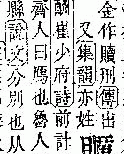 金作贖刑傳出
又集韻亦姓
崔少府詩前計
齊人曰也魯人
縣說文分別也从